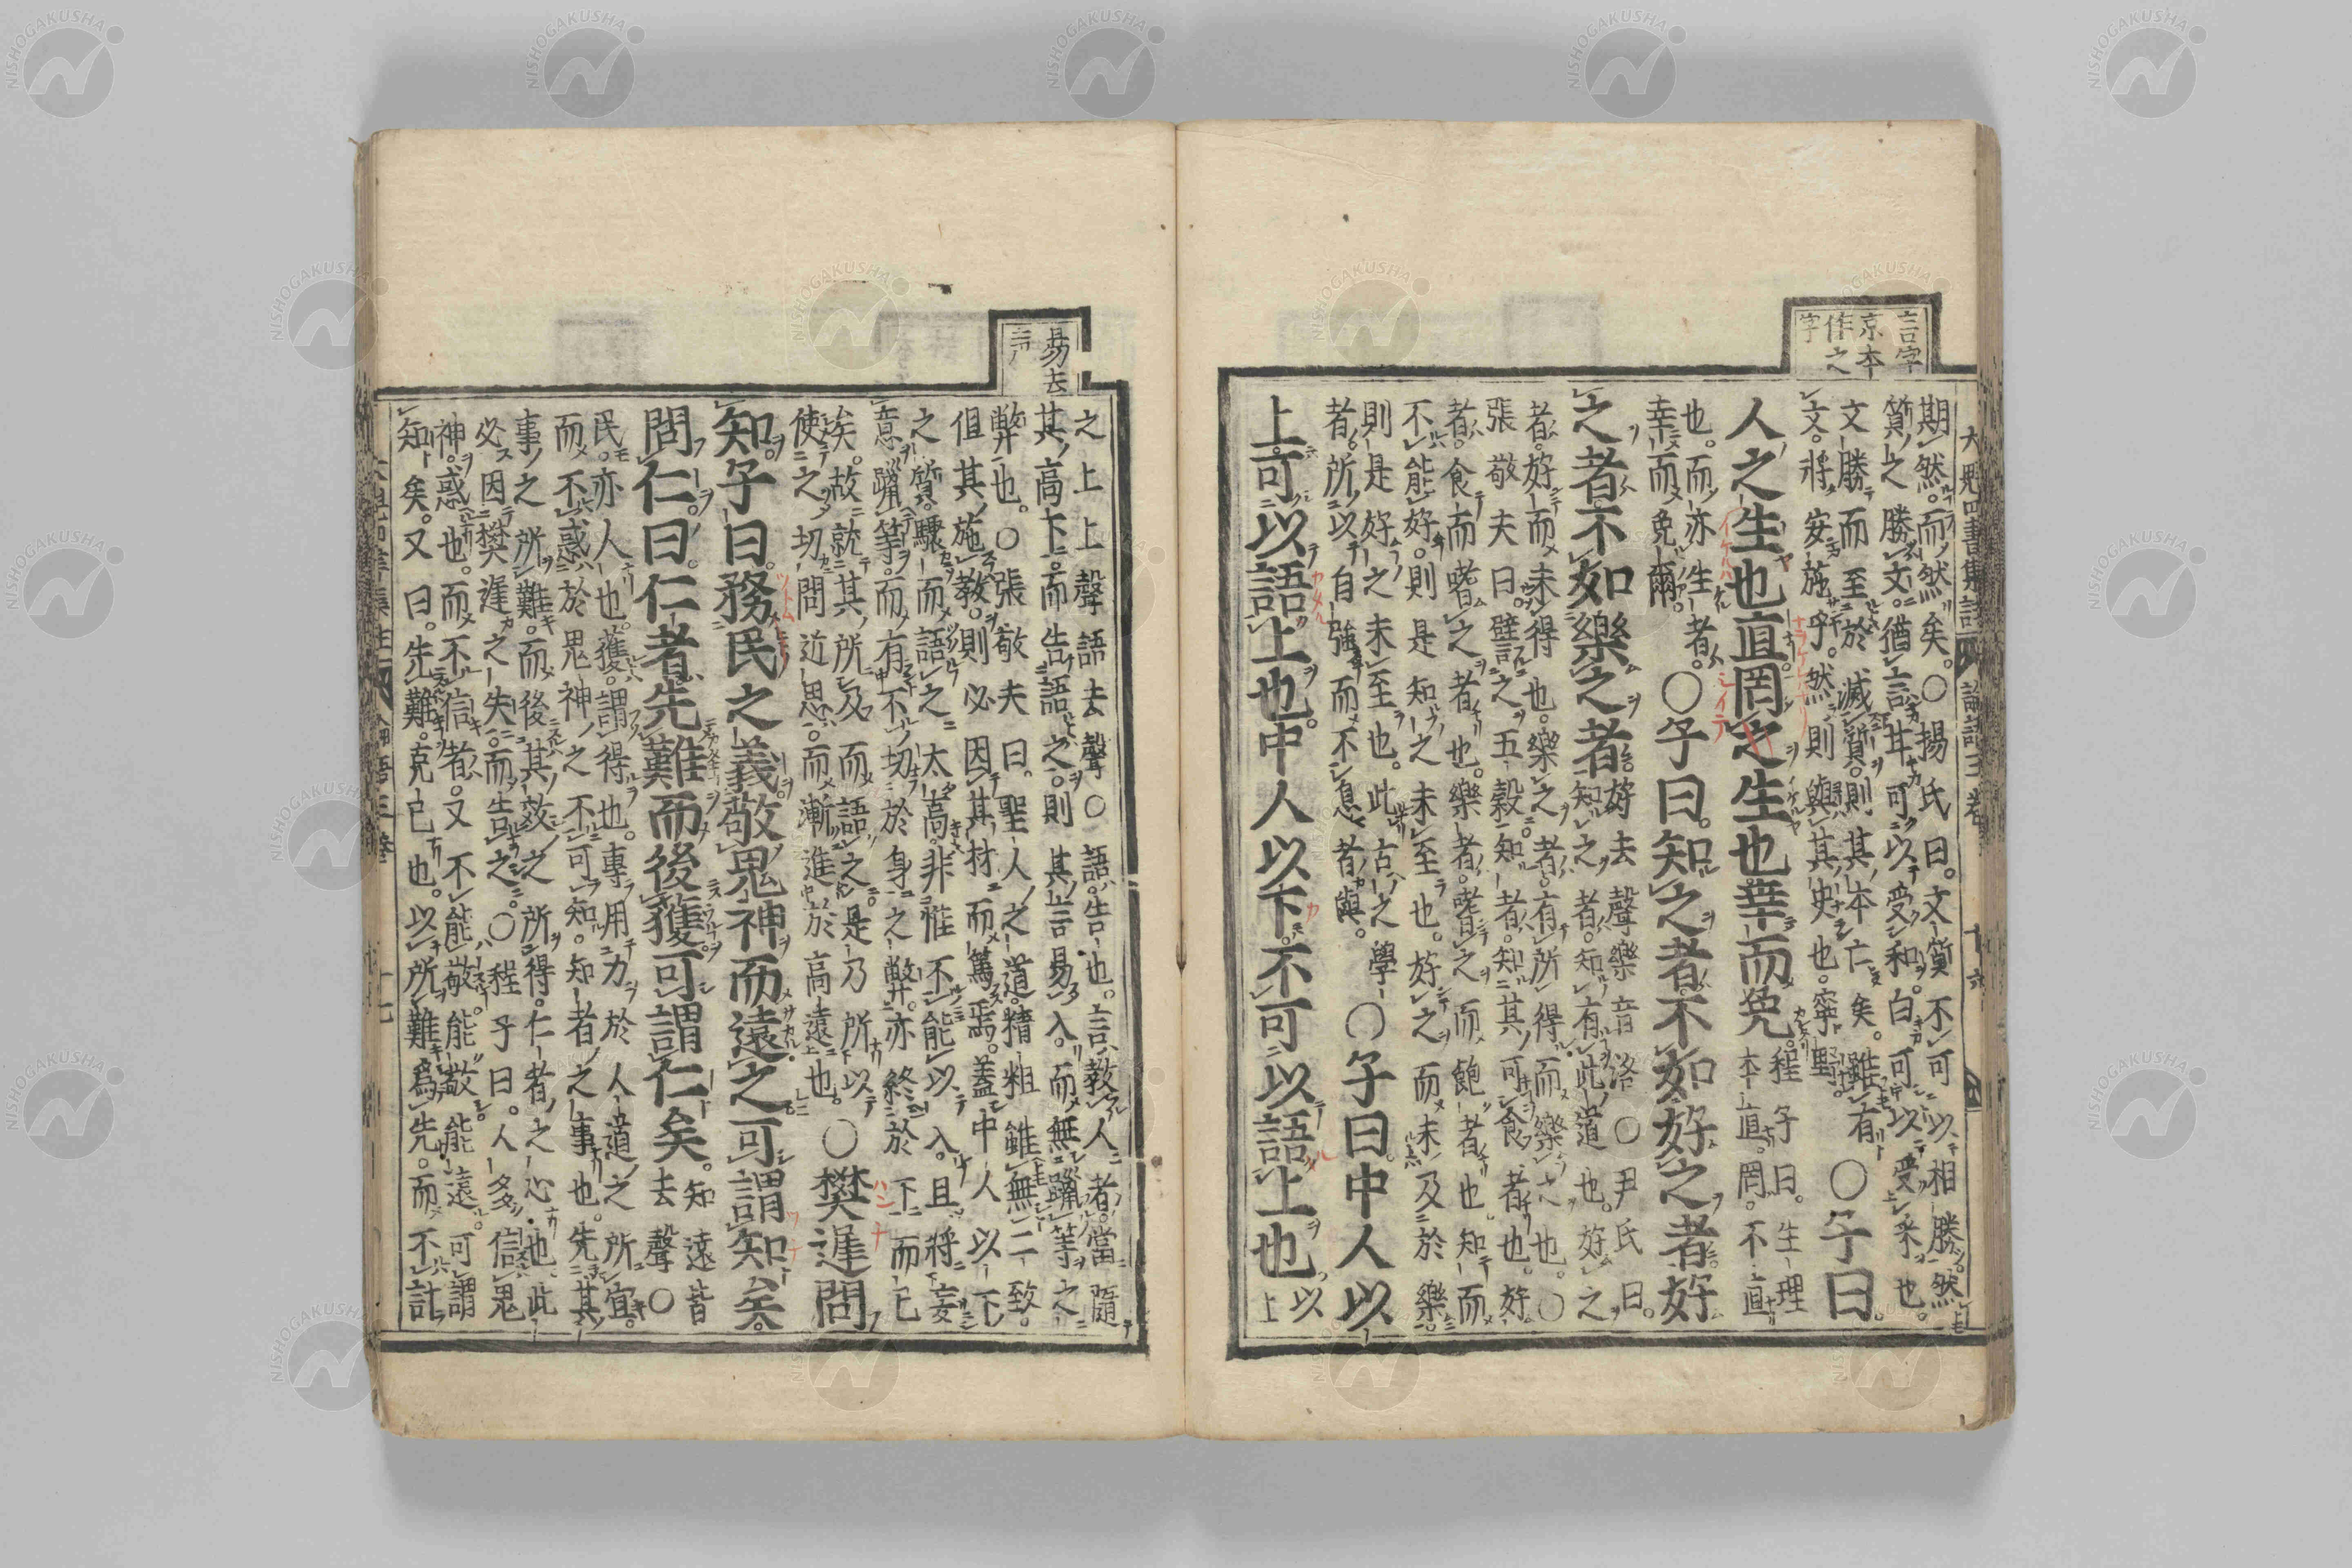 言字
京本
作之
字
大魁四書集註 論語三卷 十六
期然。而然矣。○揚氏曰。文質不可以相勝。然
質之勝文。猶言甘可以受和。白可以受采也。
文勝而至於滅質。則其本亡矣。雖有
文。將安施乎。然則與其史也。寧野。
○子曰。
人之生也直罔之生也幸而免。
程子曰。生理
本直。罔。不直
也。而亦生者。
幸而免爾。
○子曰。知之者不如好之者好
之者不如樂之者。
好去聲樂音洛○尹氏曰。
知之者。知有此道也。好之
者。好而未得也。樂之者。有所得而樂之也。○
張敬夫曰。譬之五穀。知者。知其可食者也。好
者。食而嗜之者也。樂者。嗜之而飽者也。知而
不能好。則是知之未至也。好之而未及於樂。
則是好之未至也。此古之學
者。所以自強而不息者與。
○子曰中人以
上。可以語上也。中人以下。不可以語上也
以
上
易去
聲
之上上聲語去聲○語。告也。言教人者。當隨
其高下。而告語之。則其言易入。而無躐等之
弊也。○張敬夫曰。聖人之道。精粗雖無二致。
但其施教。則必因其材而篤焉。蓋中人以下
之質。驟而語之太高。非惟不能以入。且將妄
意躐等。而有不切於身之弊。亦終於下而已
矣。故就其所及而語之。是乃所以
使之切問近思。而漸進於高遠也。
○樊遲問
知。子曰。務民之義。敬鬼神而遠之。可謂知矣。
問仁。曰。仁者。先難而後獲。可謂仁矣。
知遠皆
去聲○
民。亦人也。獲。謂得也。專用力於人道之所宜。
而不惑於鬼神之不可知。知者之事也。先其
事之所難。而後其效之所得。仁者之心也。此
必因樊遲之失。而告之。○程子曰。人多信鬼
神。惑也。而不信者。又不能敬。能敬能遠。可謂
知矣。又曰。先難。克己也。以所難爲先。而不計